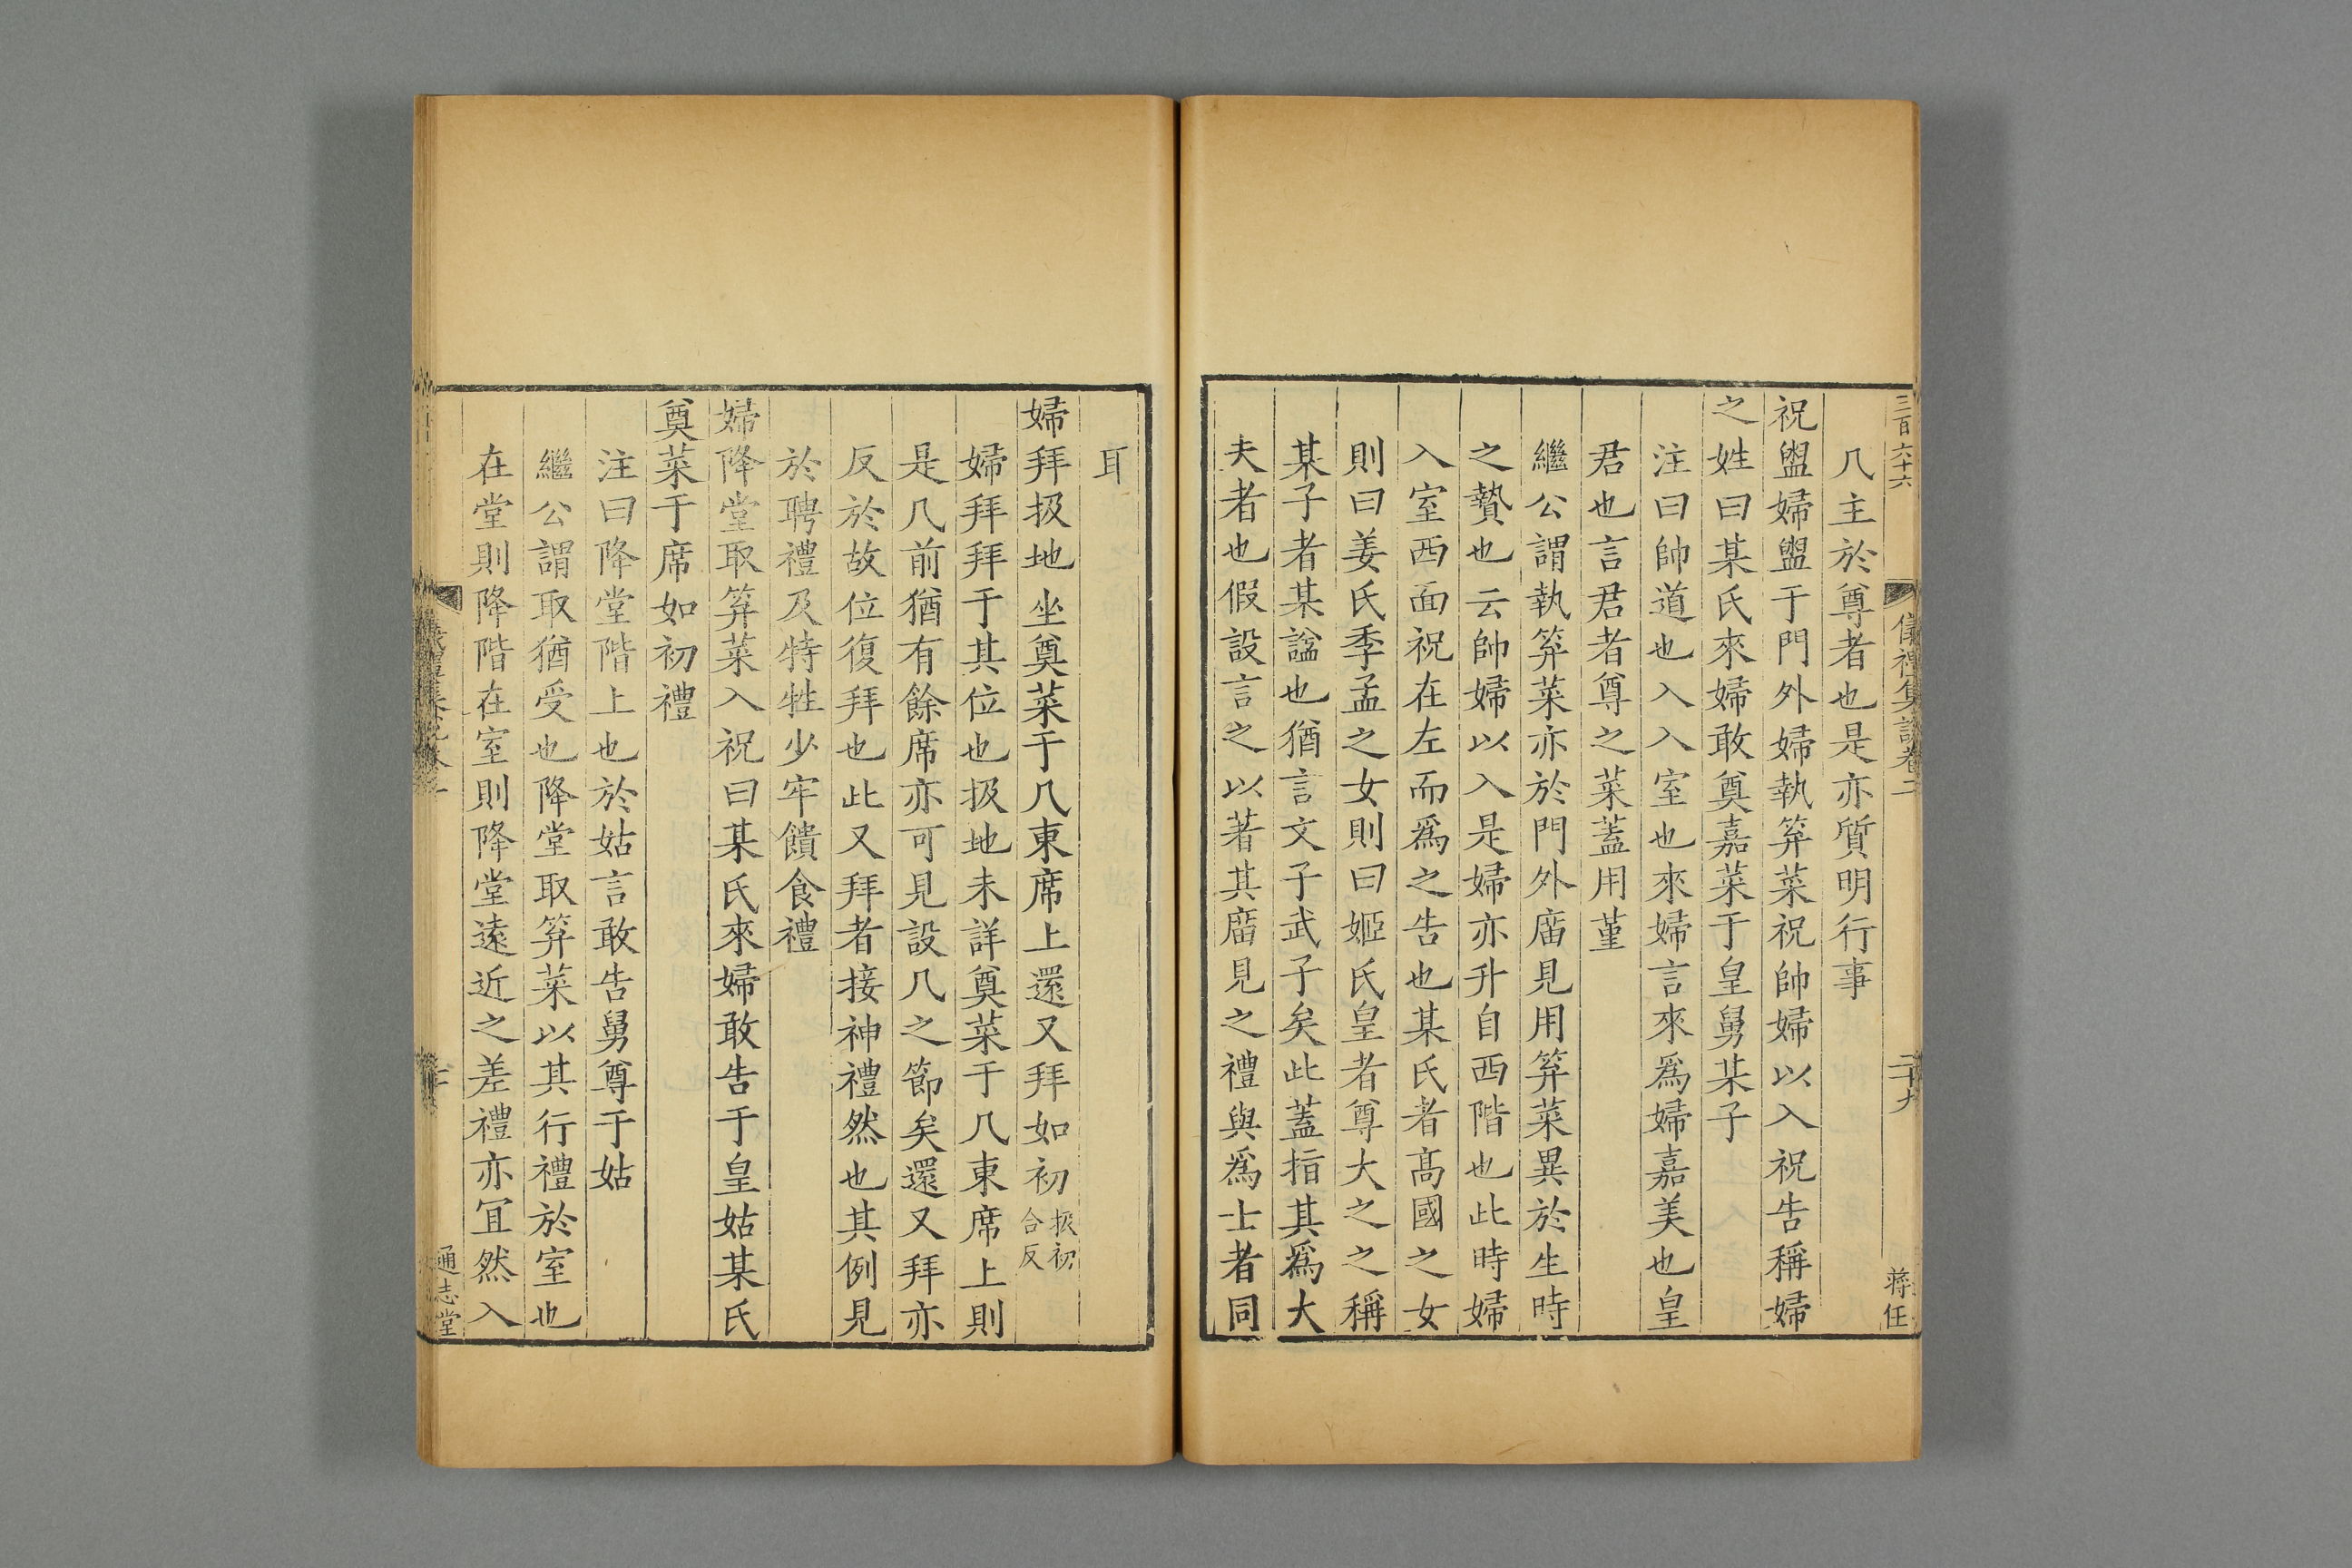 三百六十六
儀禮集說卷二
二十九
蔣任
几主於尊者也是亦質明行事
祝盥婦盥于門外婦執笲菜祝帥婦以入祝告稱婦
之姓曰某氏來婦敢奠嘉菜于皇舅某子
注曰帥道也入入室也來婦言來爲婦嘉美也皇
君也言君者尊之菜蓋用堇
繼公謂執笲菜亦於門外庿見用笲菜異於生時
之贄也云帥婦以入是婦亦升自西階也此時婦
入室西面祝在左而爲之告也某氏者高國之女
則曰姜氏季孟之女則曰姬氏皇者尊大之之稱
某子者某諡也猶言文子武子矣此蓋指其爲大
夫者也假設言之以著其庿見之禮與爲士者同
耳
婦拜扱地坐奠菜于几東席上還又拜如初扱初
合反
婦拜拜于其位也扱地未詳奠菜于几東席上則
是几前猶有餘席亦可見設几之節矣還又拜亦
反於故位復拜也此又拜者接神禮然也其例見
於聘禮及特牲少牢饋食禮
婦降堂取笲菜入祝曰某氏來婦敢告于皇姑某氏
奠菜于席如初禮
注曰降堂階上也於姑言敢告舅尊于姑
繼公謂取猶受也降堂取笲菜以其行禮於室也
在堂則降階在室則降堂遠近之差禮亦冝然入
通志堂